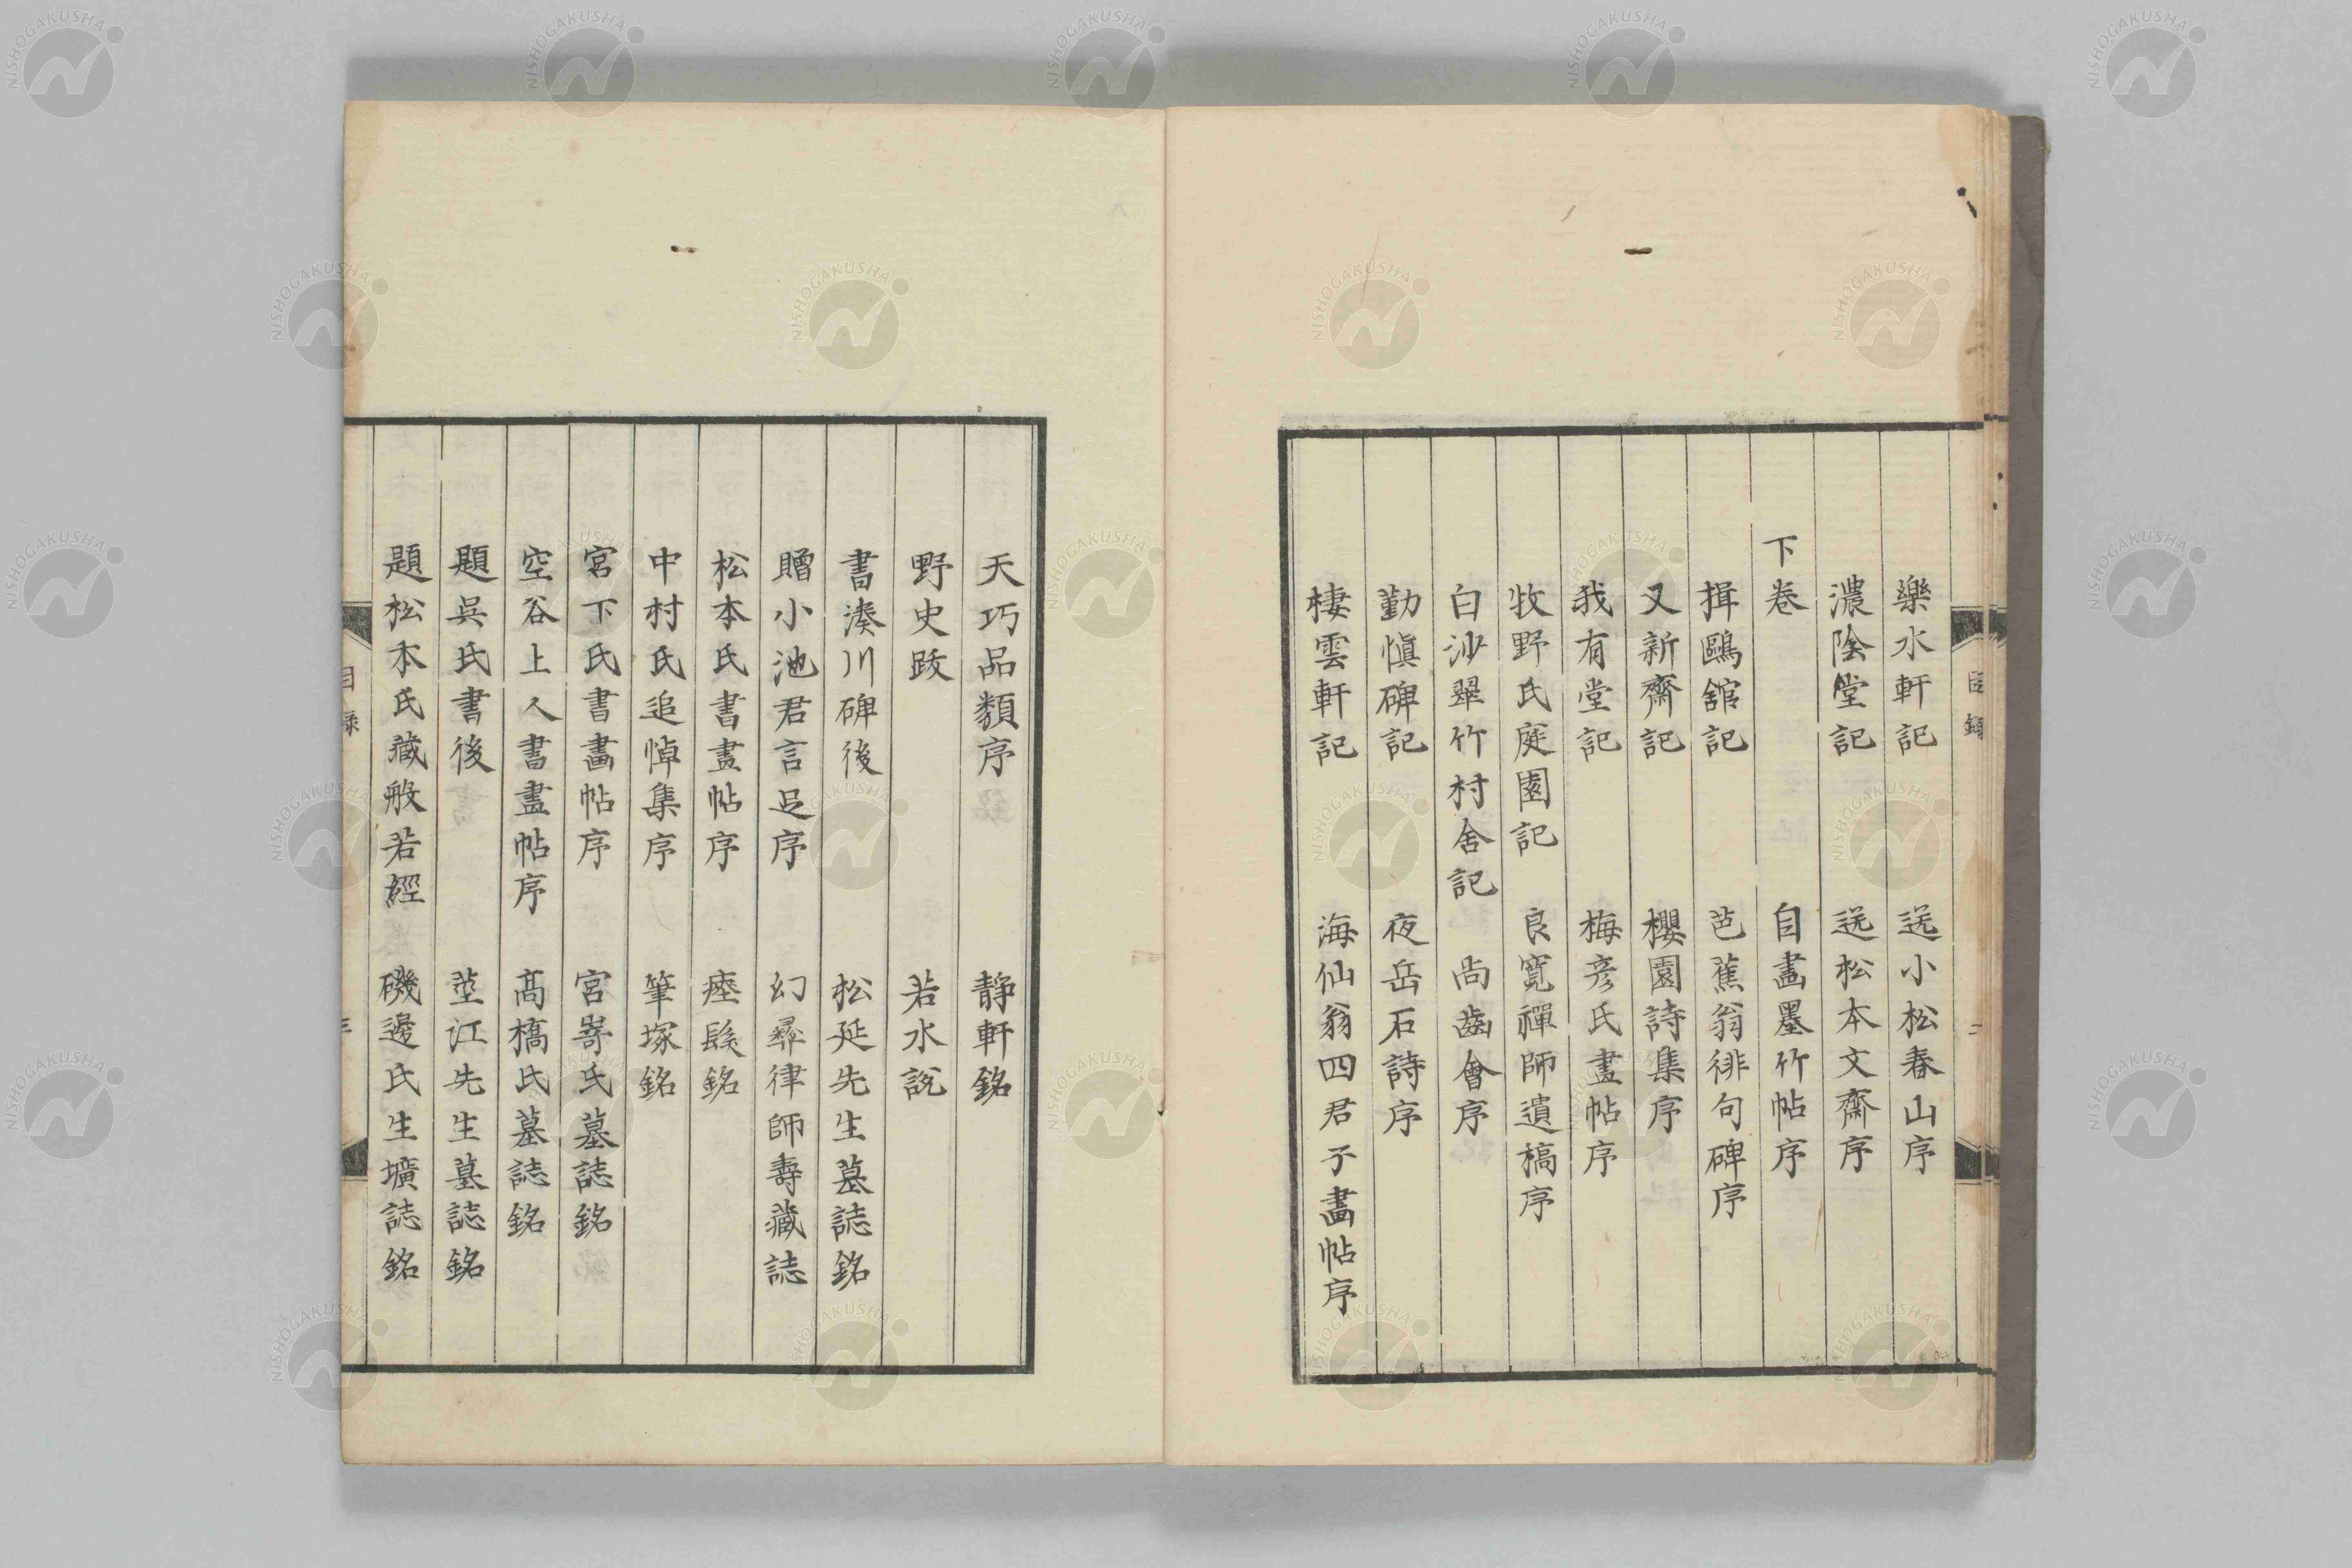 樂水軒記　送小松春山序
濃陰堂記　送松本文齋序
下卷　自畫墨竹帖序
揖鷗舘記　芭蕉翁徘句碑序
又新齋記　櫻園詩集序
我有堂記　梅彦氏畫帖序
牧野氏庭園記　良寛禪師遺稿序
白沙翠竹村舍記　尚齒會序
勤愼碑記　夜岳石詩序
棲雲軒記　海仙翁四君子畫帖序
目錄
二
天巧品類序　静軒銘
野史跋　若水説
書湊川碑後　松延先生墓誌銘
贈小池君言足序　幻彝律師壽藏誌
松本氏書畫帖序　瘞髮銘
中村氏追悼集序　筆塚銘
宮下氏書畫帖序　宮嵜氏墓誌銘
空谷上人書畫帖序　髙橋氏墓誌銘
題呉氏書後　蓙江先生墓誌銘
題松本氏藏般若經　磯邊氏生壙誌銘
目録
NISHOGAKUSHA